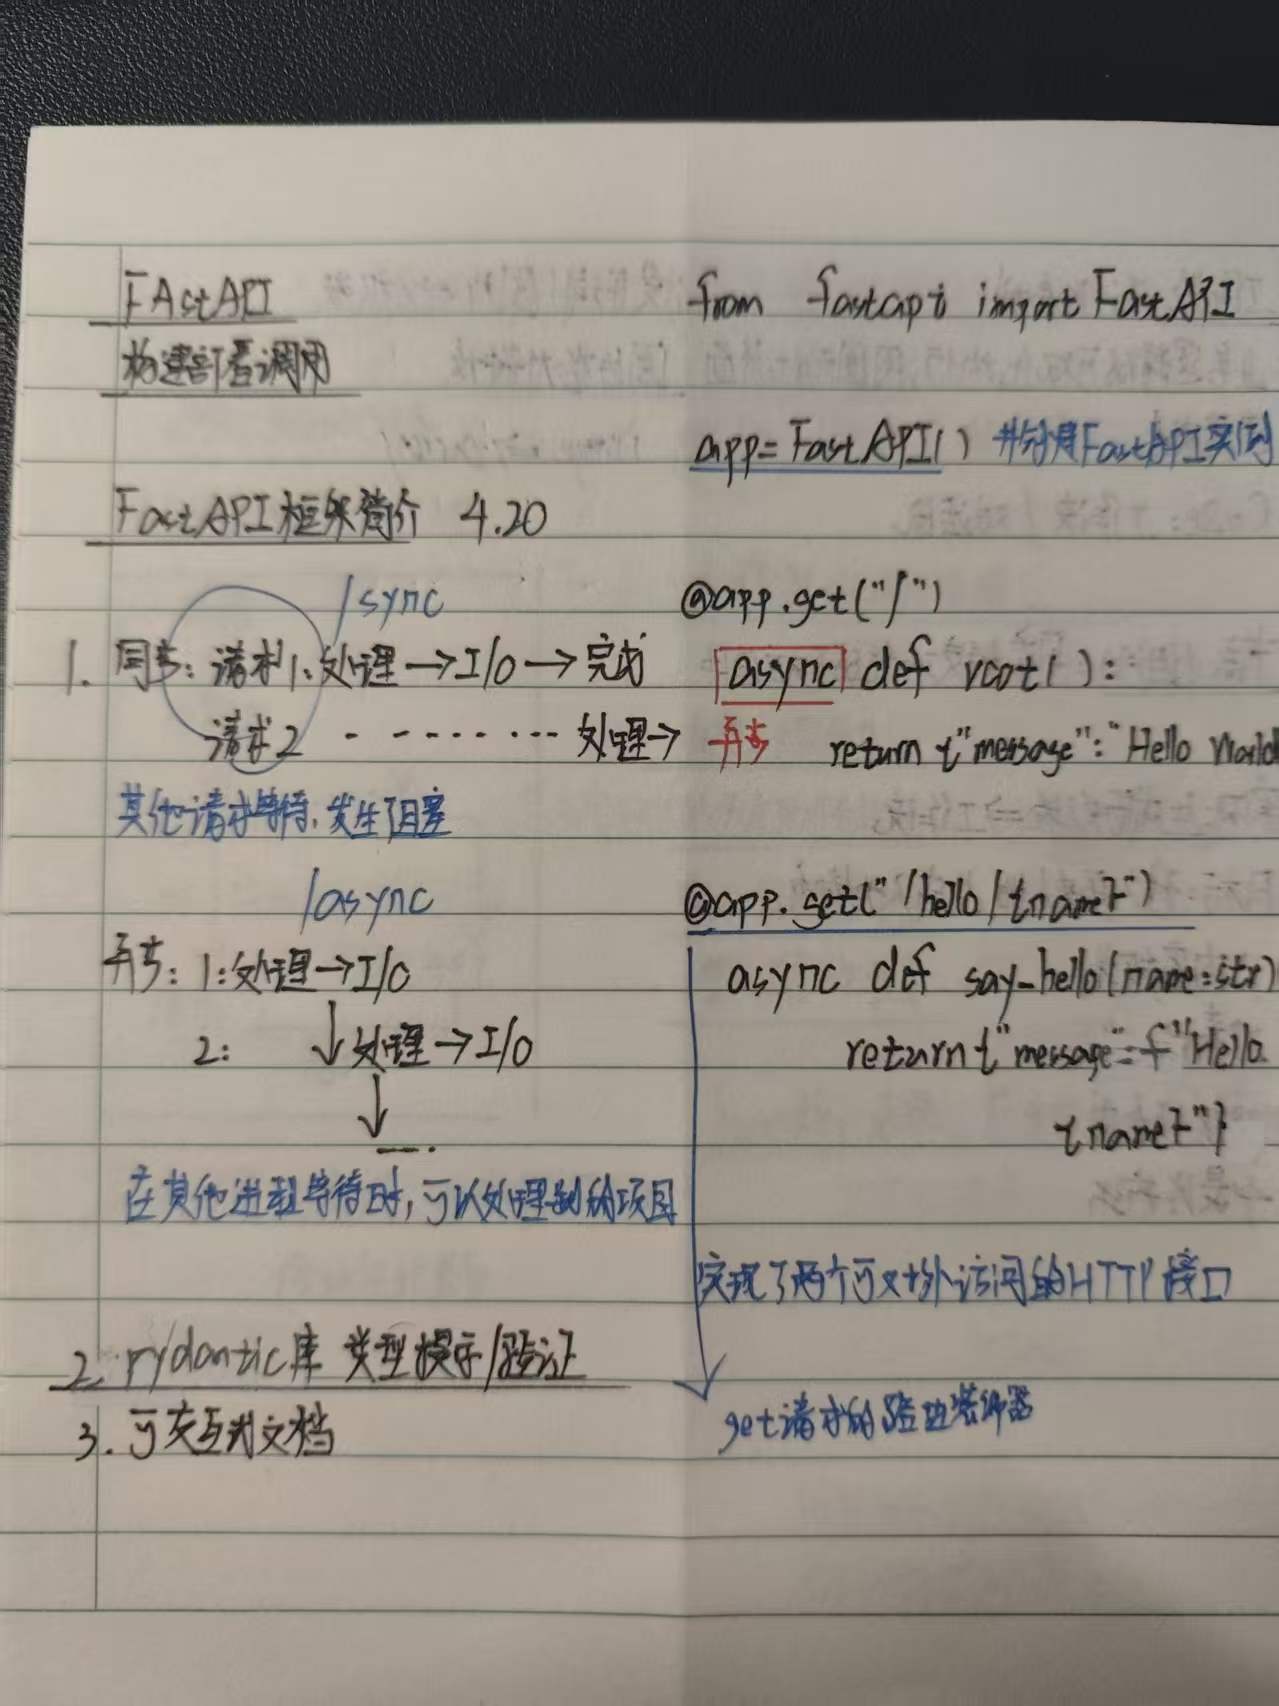 FAstAPI
构建部署调用
FastAPI框架简介 4.20
/sync
1. 同步: 请求1: 处理→I/O→完成
请求2 - - - - - - - - - 处理→
其他请求等待,发生阻塞
/async
异步: 1:处理→I/O
2: ↓处理→I/O
↓
....
在其他进程等待时,可以处理别的项目
2. pydantic库 类型提示/验证
3. 可交互式文档
from fastapi import FastAPI
app=FastAPI() #创建FastAPI实例
@app.get("/")
async def root():
异步 return {"message":"Hello World
@app.get("/hello/{name}")
async def say_hello(name:str)
return {"message":f"Hello
{name}"}
实现了两个可对外访问的HTTP接口
get请求的路由装饰器